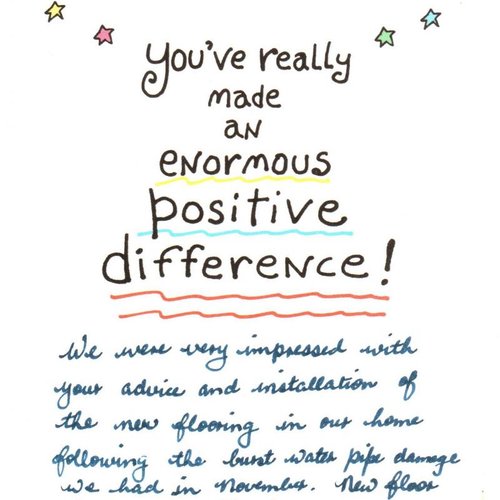 You've really
made
an
enormous
positive
difference!
We were very impressed with
your advice and installation of
the new flooring in our home
following the burst water pipe damage
we had in November. New floor